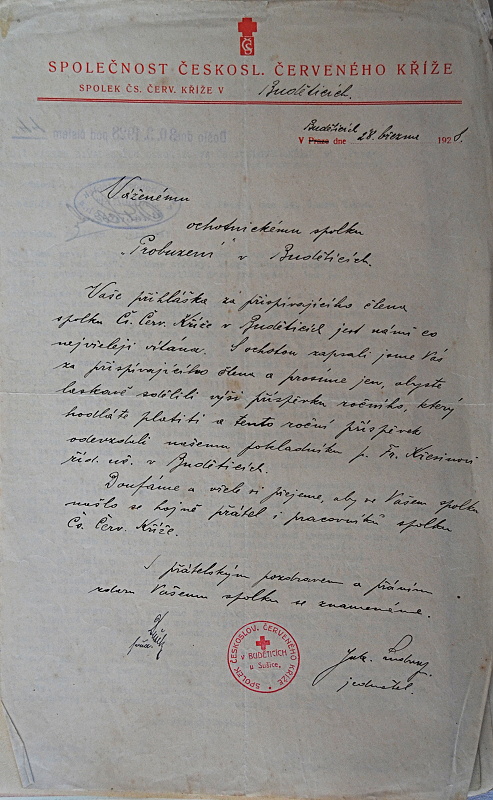 SPOLEČNOST ČESKOSL. ČERVENÉHO KŘÍŽE
SPOLEK ČS. ČERV. KŘÍŽE V Buděticích.
Buděticích
V Praze dne 28. března 1928.
Váženému
ochotnickému spolku
"Probuzení" v Buděticích.
Vaše přihláška za přispívajícího člena
spolku Čs. Červ. Kříže v Buděticích jest námi co
nejvřeleji vítána. S ochotou zapsali jsme Vás
za přispívajícího člena a prosíme jen, abyste
laskavě sdělili výši příspěvku ročního, který
hodláte platiti a tento roční příspěvek
odevzdali našemu pokladníku p. Fr.
říd. uč. v Buděticích.
Doufáme a vřele si přejeme, aby ve Vašem spolku
našlo se hojně přátel i pracovníků spolku
Čs. Červ. Kříže.
S přátelským pozdravem a přáním
zdaru Vašemu spolku se znamenáme.
SPOLEK ČESKOSLOV. ČERVENÉHO KŘÍŽE
v BUDĚTICÍCH
u Sušice.
jednatel.